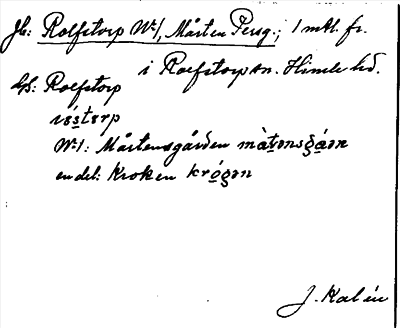 Jb: Rolfstorp Nr 1, Mårten Persg.; 1 mtl. fr.
i Rolfstorp sn. Himle hd.
Us: Rolfstorp
råstørp
Nr 1: Mårtensgården màtənsgáən
en del: Kroken krógən
J. Kalén